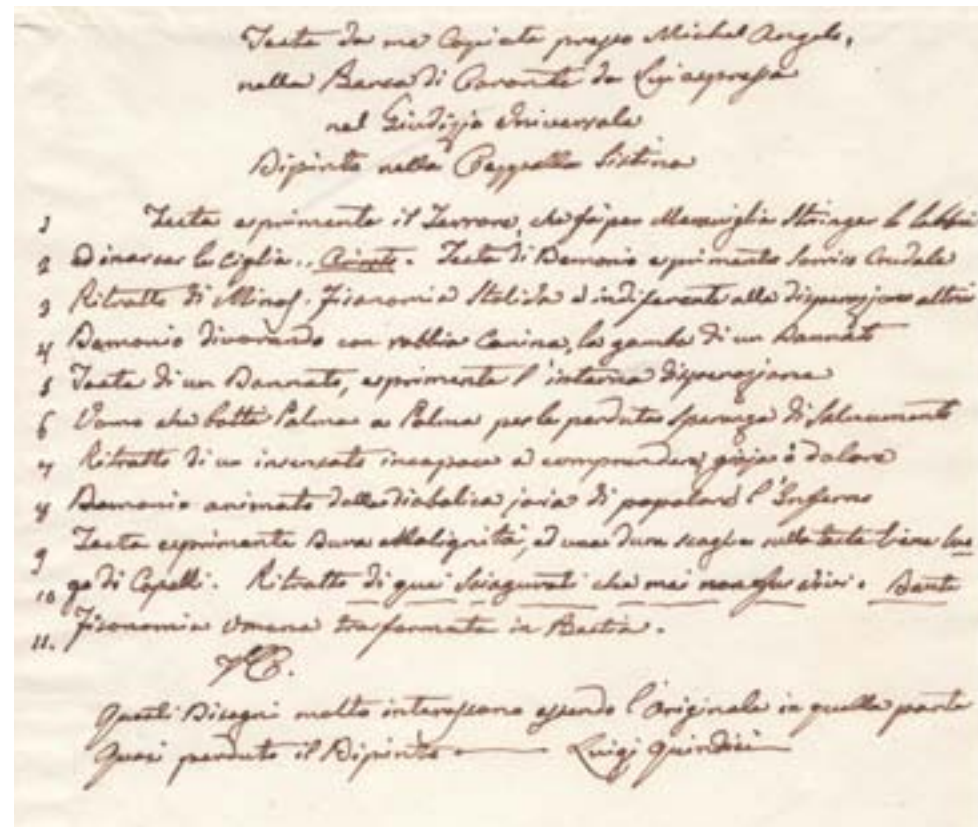 Teste da me Copiate presso Michel Angelo,
nella Barca di Caronte da Lui espressa
nel Giudizio Universale
Dipinto nella Cappella Sistina
1 Testa esprimente il Terrore, che fà per Meraviglia Stringer le labbra
2 Ed inarcar le Ciglia.. . Testa di Demonio esprimente Sorriso Crudele
3 Ritratto di Minos. Fisonomia Stolida ed indiferente alla disperazione altrui
4 Demonio divorando con rabbia Canina, la gamba di un Dannato
5 Testa di un Dannato, esprimente l'interna disperazione
6 Uomo che batte Palma a Palma per la perduta speranza di Salvamento
7 Ritratto di un insensato incapace a comprendere gioja ò dolore
8 Demonio animato dalla diabolica di popolare l'Inferno
9 Testa esprimente Dura Malignità, ed una dura scaglia sulla testa tiene luo
10 go di Capelli. Ritratto di quei Sciagurati che mai non fur vivi. Dante
11. Fisonomia Umana trasformata in Bestia.
Questi Disegni molto interessano essendo l'Originale in quella parte
Quasi perduto il Dipinto — Luigi Quindici